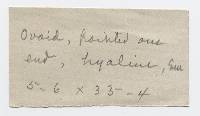 Ovoid, pointed one
end, hyaline, sm
5-6 x 3.5-4